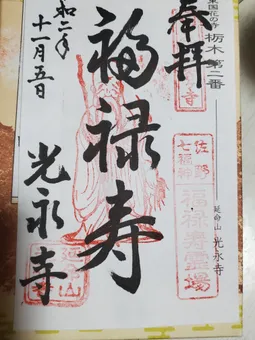 東国花の寺 栃木 第二番
奉拝
佐野
七福神
福禄寿霊場
延命山 光永寺
福禄寿
令和二年
十一月五日
光永寺